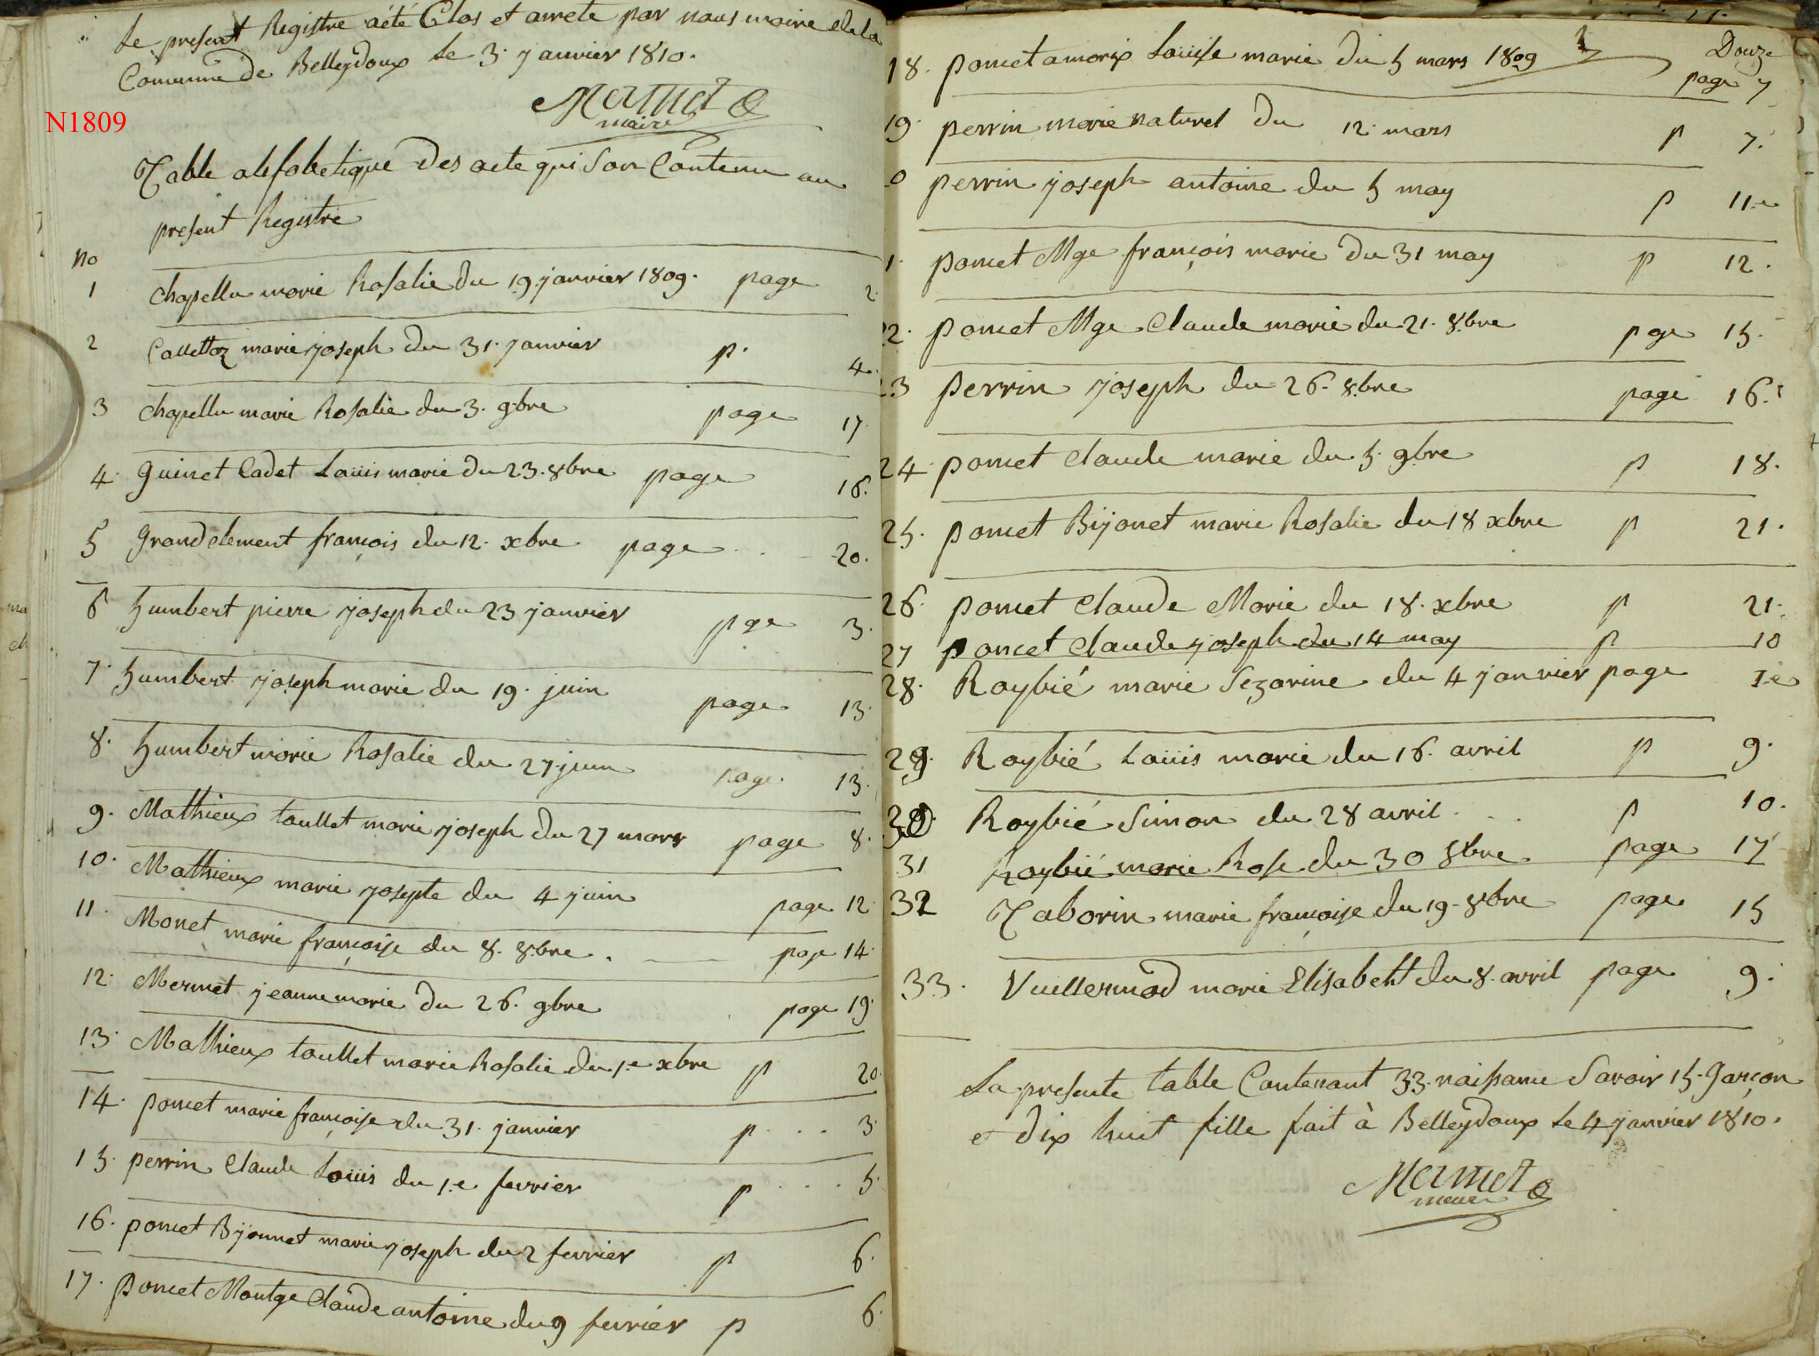 Le present Registre a été Clos et arrete par nous maire de la
Comunne de Belleydoux le 3. janvier 1810.
maire
N1809
Table alfabetique Des acte qui Son Contenu au
present Registre
No
1 Chapellu marie Rosalie du 19. janvier 1809. page 2
2 Callettoz marie joseph du 31. janvier p. 4.
3 Chapellu marie Rosalie du 3. 9.bre page 17
4. Guinet Cadet Louis marie du 23. 8bre page 16.
5 Grandclement françois du 12. xbre page 20.
6 humbert pierre joseph du 23 janvier pge 3.
7. humbert joseph marie du 19. juin page 13.
8. humbert marie Rosalie du 27 juin page 13.
9. Mathieux taullet marie joseph du 27 mars page 8.
10. Mathieux marie josepte du 4 juin page 12
11. Monet marie françoise du 8. 8.bre page 14.
12. Mermet jeanne marie du 26. 9bre page 19.
13. Mathieux taullet marie Rosalie du 1.e xbre p 20.
14. poncet marie françoise du 31. janvier p 3
15. perrin Claude Louis du 1.e fevrier p 5.
16. poncet Bijonnet marie joseph du 2 fevrier p 6.
17. poncet Montge Claude antoine du 9 fevriér p 6.
18. poncet amorix Louise marie du 5 mars 1809 Douze
page 7
19. perrin marie naturel du 12. mars p 7.
0 perrin joseph antoine du 5 may p 11.e
1. poncet Mge françois marie du 31 may p 12.
22. poncet Mge Claude marie du 21. 8.bre pge 15.
23 perrin joseph du 26. 8.bre page 16.
24. poncet Claude marie du 5. 9.bre p 18.
25. poncet Bijonet marie Rosalie du 18 xbre p 21.
26. poncet Claude Marie du 18. xbre p 21.
27 poncet Claude joseph du 14 may p 10
28. Raybié marie Sezarine du 4 janvier page 1.e
29. Raybié Louis marie du 16. avril p 9.
30. Raybié Simon du 28 avril p 10.
31 Raybié marie Rose du 30 8bre page 17
32 Taborin marie françoise du 19. 8bre page 15
33. Vuillermod marie Elisabeht du 8. avril page 9.
La presente table Contenant 33. naissance Savoir 15. Garçon
et dix huit fille fait à Belleydoux le 4 janvier 1810.